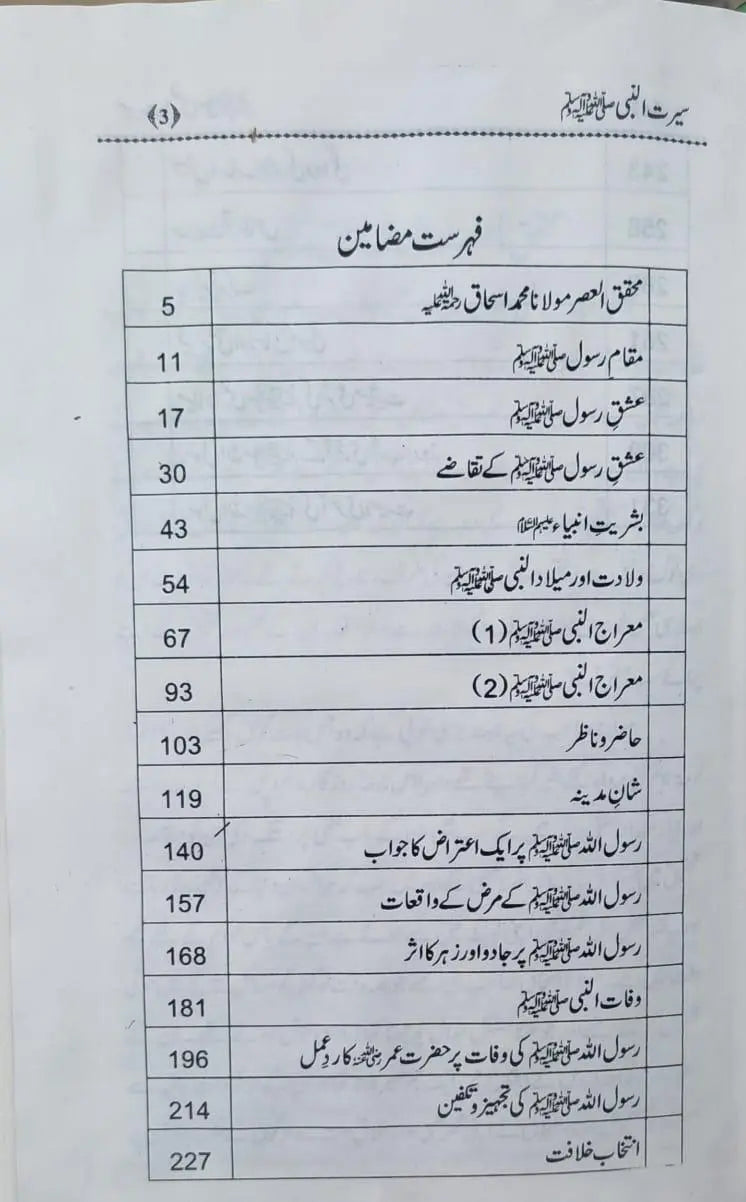 سیرت النبی ﷺ ﴿3﴾
فہرست مضامین
محقق العصر مولانا محمد اسحاق رحمۃ اللہ علیہ 5
مقامِ رسول ﷺ 11
عشقِ رسول ﷺ 17
عشقِ رسول ﷺ کے تقاضے 30
بشریتِ انبیاء علیہم السلام 43
ولادت اور میلاد النبی ﷺ 54
معراج النبی ﷺ (1) 67
معراج النبی ﷺ (2) 93
حاضر و ناظر 103
شانِ مدینہ 119
رسول اللہ ﷺ پر ایک اعتراض کا جواب 140
رسول اللہ ﷺ کے مرض کے واقعات 157
رسول اللہ ﷺ پر جادو اور زہر کا اثر 168
وفات النبی ﷺ 181
رسول اللہ ﷺ کی وفات پر حضرت عمر رضی اللہ عنہ کا ردِعمل 196
رسول اللہ ﷺ کی تجہیز و تکفین 214
انتخاب خلافت 227